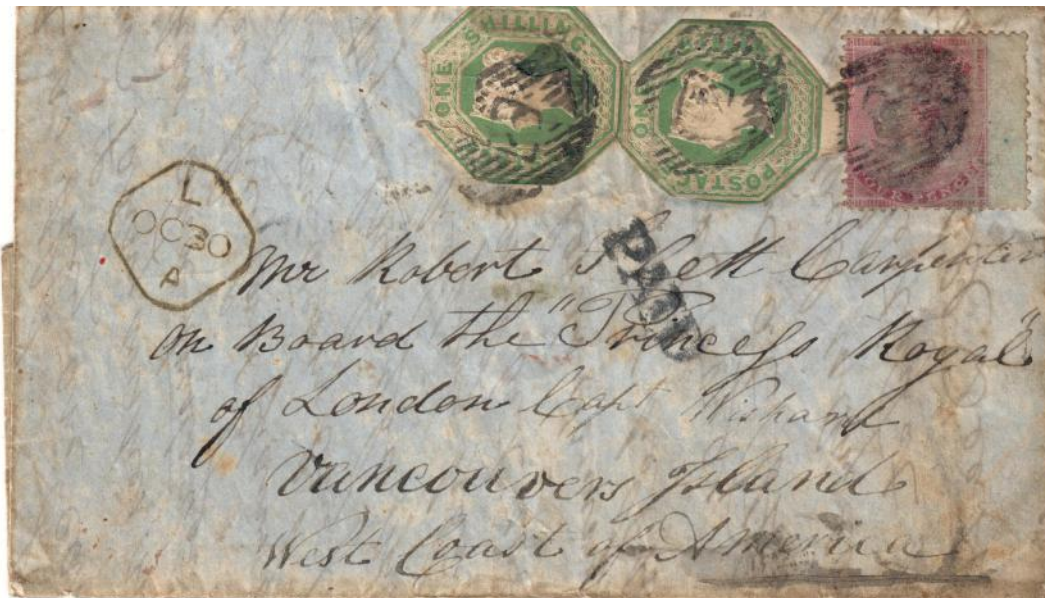 ONE SHILLING
ONE POSTAGE
PENCE
L
OC 30
A
PAID
Mr Robert Carpenter
on Board the "Princess Royal"
of London Capt Wishart
Vancouvers Island
West Coast of America